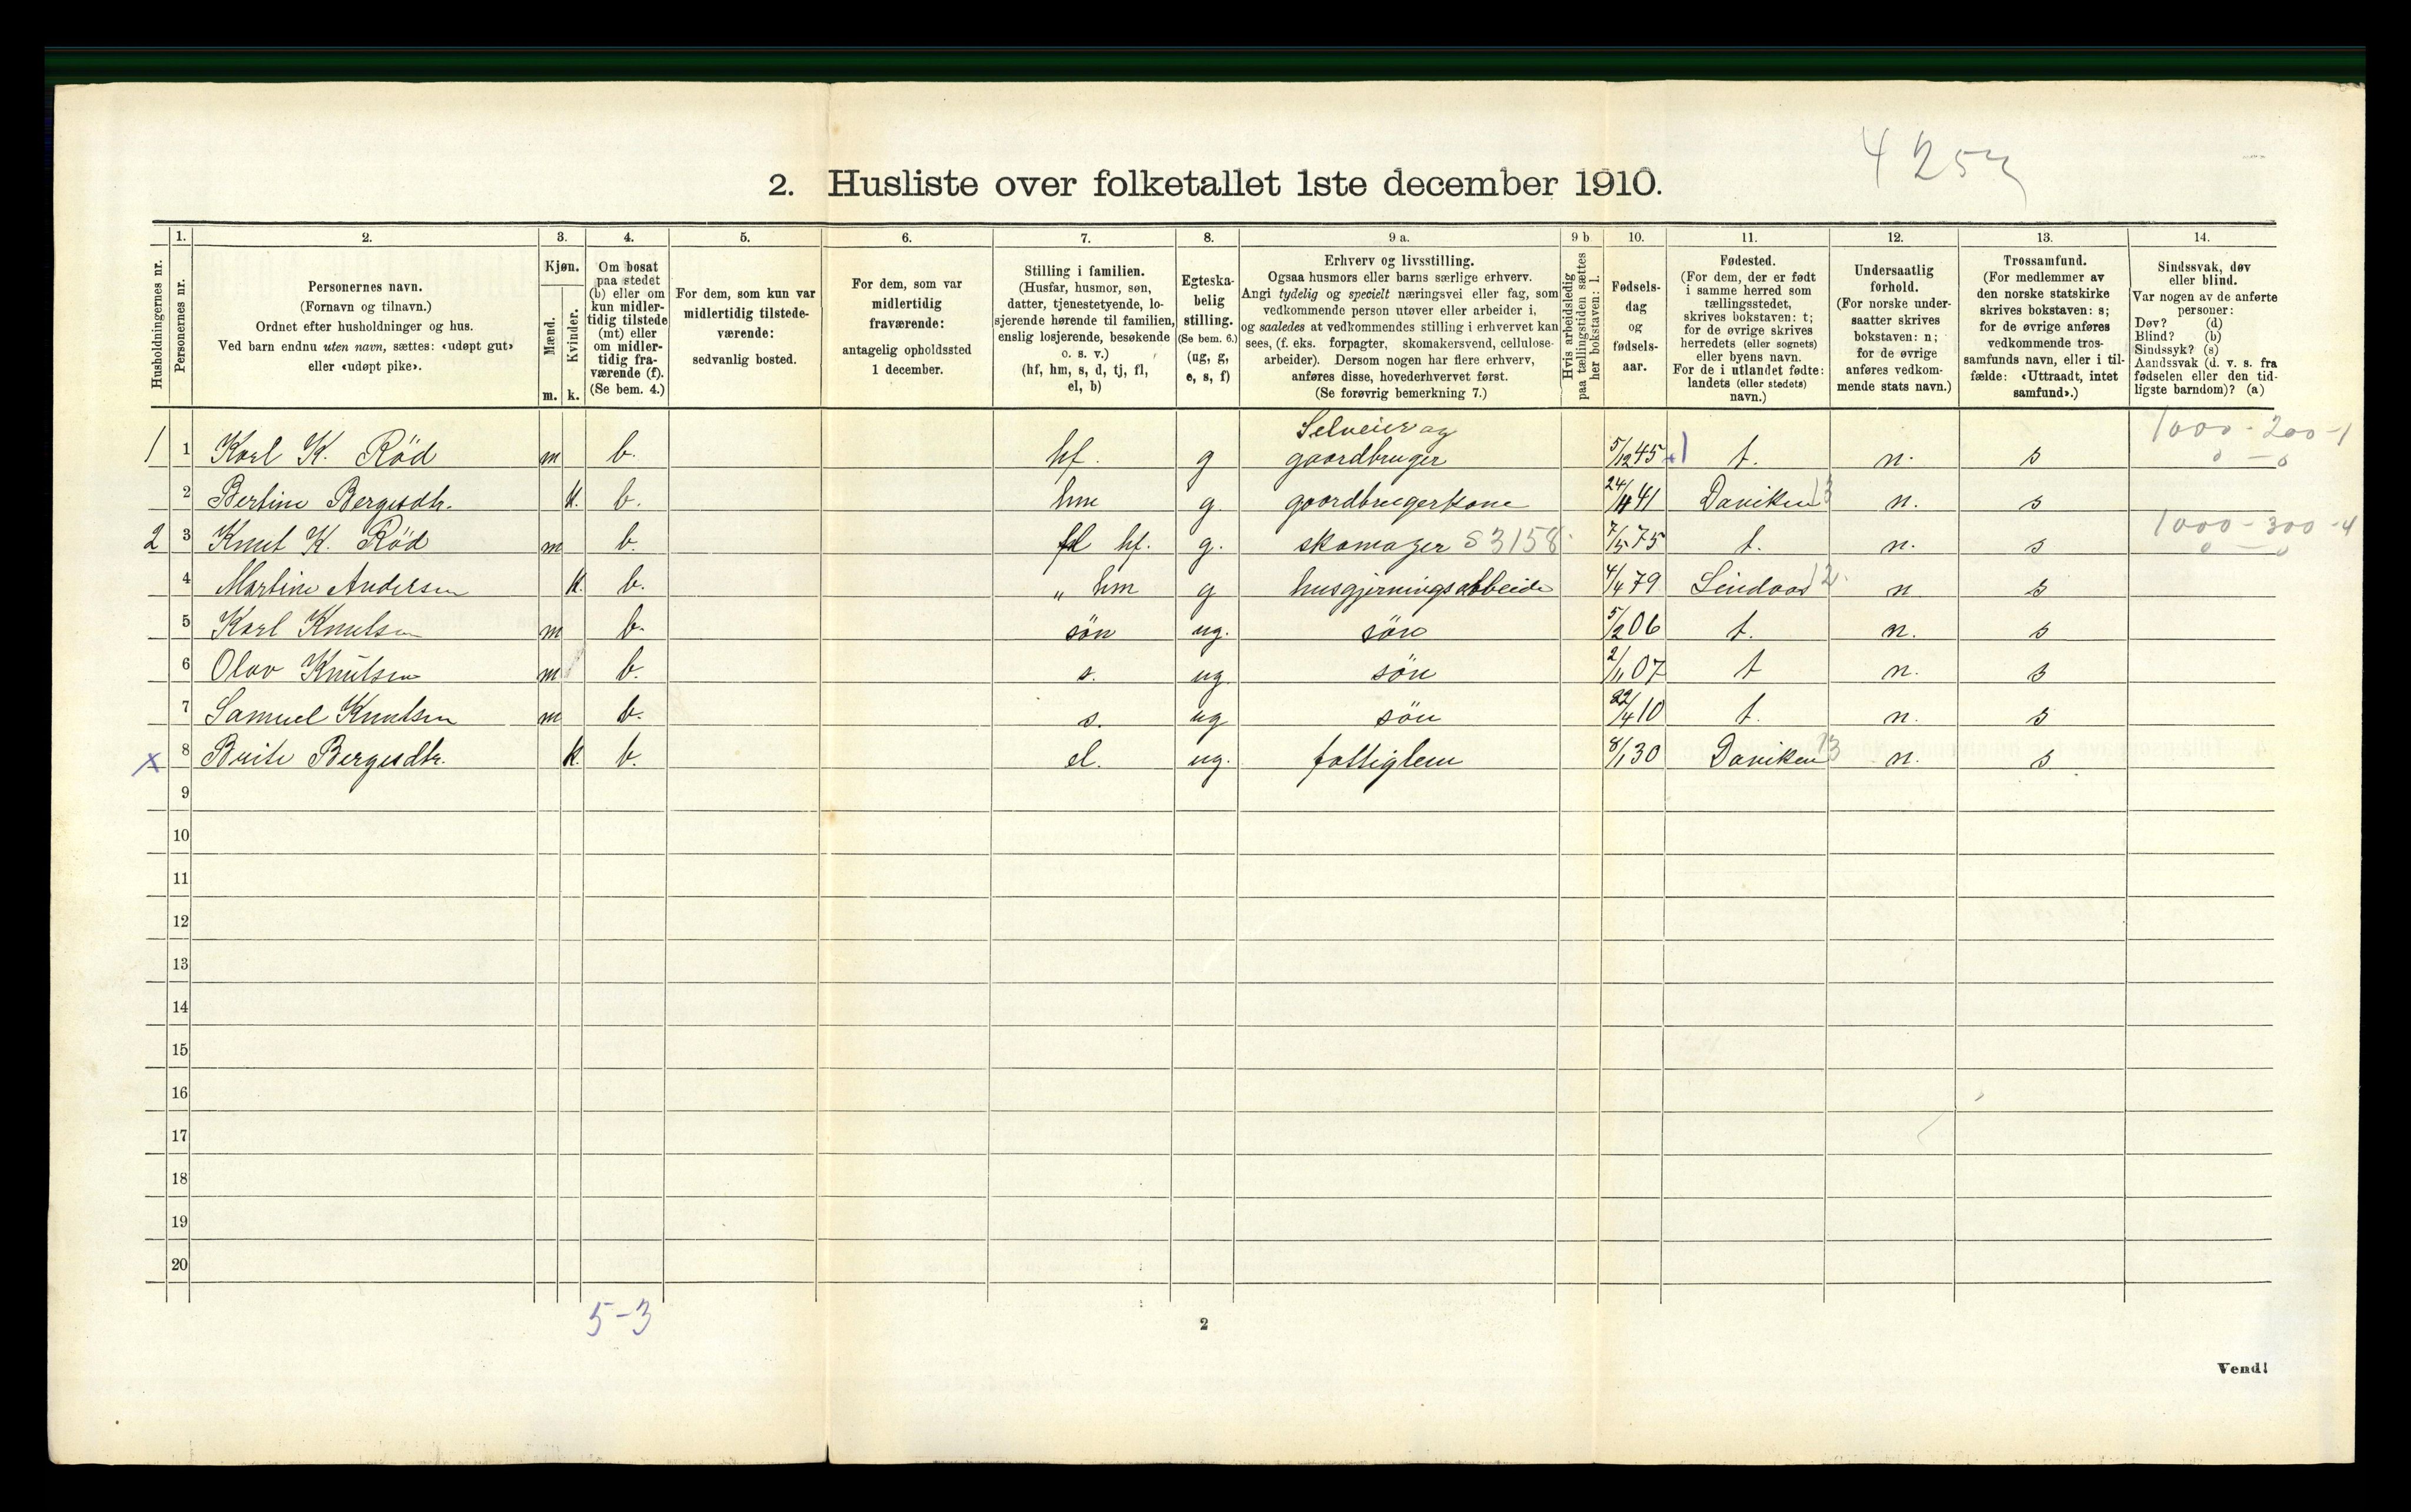 4253
2. Husliste over folketallet 1ste december 1910.
Husholdningernes nr.
1. Personernes nr.
2. Personernes navn. (Fornavn og tilnavn.) Ordnet efter husholdninger og hus. Ved barn endnu uten navn, sættes: «udøpt gut» eller «udøpt pike».
3. Kjøn. Mænd. m. Kvinder. k.
4. Om bosat paa stedet (b) eller om kun midlertidig tilstede (mt) eller om midlertidig fraværende (f). (Se bem. 4.)
5. For dem, som kun var midlertidig tilstedeværende: sedvanlig bosted.
6. For dem, som var midlertidig fraværende: antagelig opholdssted 1 december.
7. Stilling i familien. (Husfar, husmor, søn, datter, tjenestetyende, losjerende hørende til familien, enslig losjerende, besøkende o. s. v.) (hf, hm, s, d, tj, fl, el, b)
8. Egteskabelig stilling. (Se bem. 6.) (ug, g, e, s, f)
9 a. Erhverv og livsstilling. Ogsaa husmors eller barns særlige erhverv. Angi tydelig og specielt næringsvei eller fag, som vedkommende person utøver eller arbeider i, og saaledes at vedkommendes stilling i erhvervet kan sees, (f. eks. forpagter, skomakersvend, cellulosearbeider). Dersom nogen har flere erhverv, anføres disse, hovederhvervet først. (Se forøvrig bemerkning 7.)
9 b Hvis arbeidsledig paa tællingstiden sættes her bokstaven: l.
10. Fødselsdag og fødselsaar.
11. Fødested. (For dem, der er født i samme herred som tællingsstedet, skrives bokstaven: t; for de øvrige skrives herredets (eller sognets) eller byens navn. For de i utlandet fødte: landets (eller stedets) navn.)
12. Undersaatlig forhold. (For norske undersaatter skrives bokstaven: n; for de øvrige anføres vedkommende stats navn.)
13. Trossamfund. (For medlemmer av den norske statskirke skrives bokstaven: s; for de øvrige anføres vedkommende trossamfunds navn, eller i tilfælde: «Uttraadt, intet samfund».)
14. Sindssvak, døv eller blind. Var nogen av de anførte personer: Døv? (d) Blind? (b) Sindssyk? (s) Aandssvak (d. v. s. fra fødselen eller den tidligste barndom)? (a)
1 1 Karl K. Rød m b. hf. g Selveier og gaardbruger 5/12 45 1 t. n. s 1000-200-1 0-0
2 Bertine Bergesdtr. k. b. hm g gaardbrugerkone 24/11 41 Daviken 13 n. s
2 3 Knut K. Rød m b. hf. g. skomager S3158 7/5 75 t. n. s 1000-300-4 0-0
4 Martine Andersen k. b. „ hm g husgjerningsarbeide 4/4 79 Lindaas 12 n s
5 Karl Knutsen m b. søn ug. søn 5/2 06 t. n. s
6 Olav Knutsen m b. s. ug. søn 2/11 07 t n. s
7 Samuel Knutsen m b. s. ug søn 22/4 10 t. n. s
x 8 Brite Bergesdtr. k. b. el. ug. fattiglem 8/1 30 Daviken 13 n. s
9
10
11
12
13
14
15
16
17
18
19
20
5-3
2
Vend!